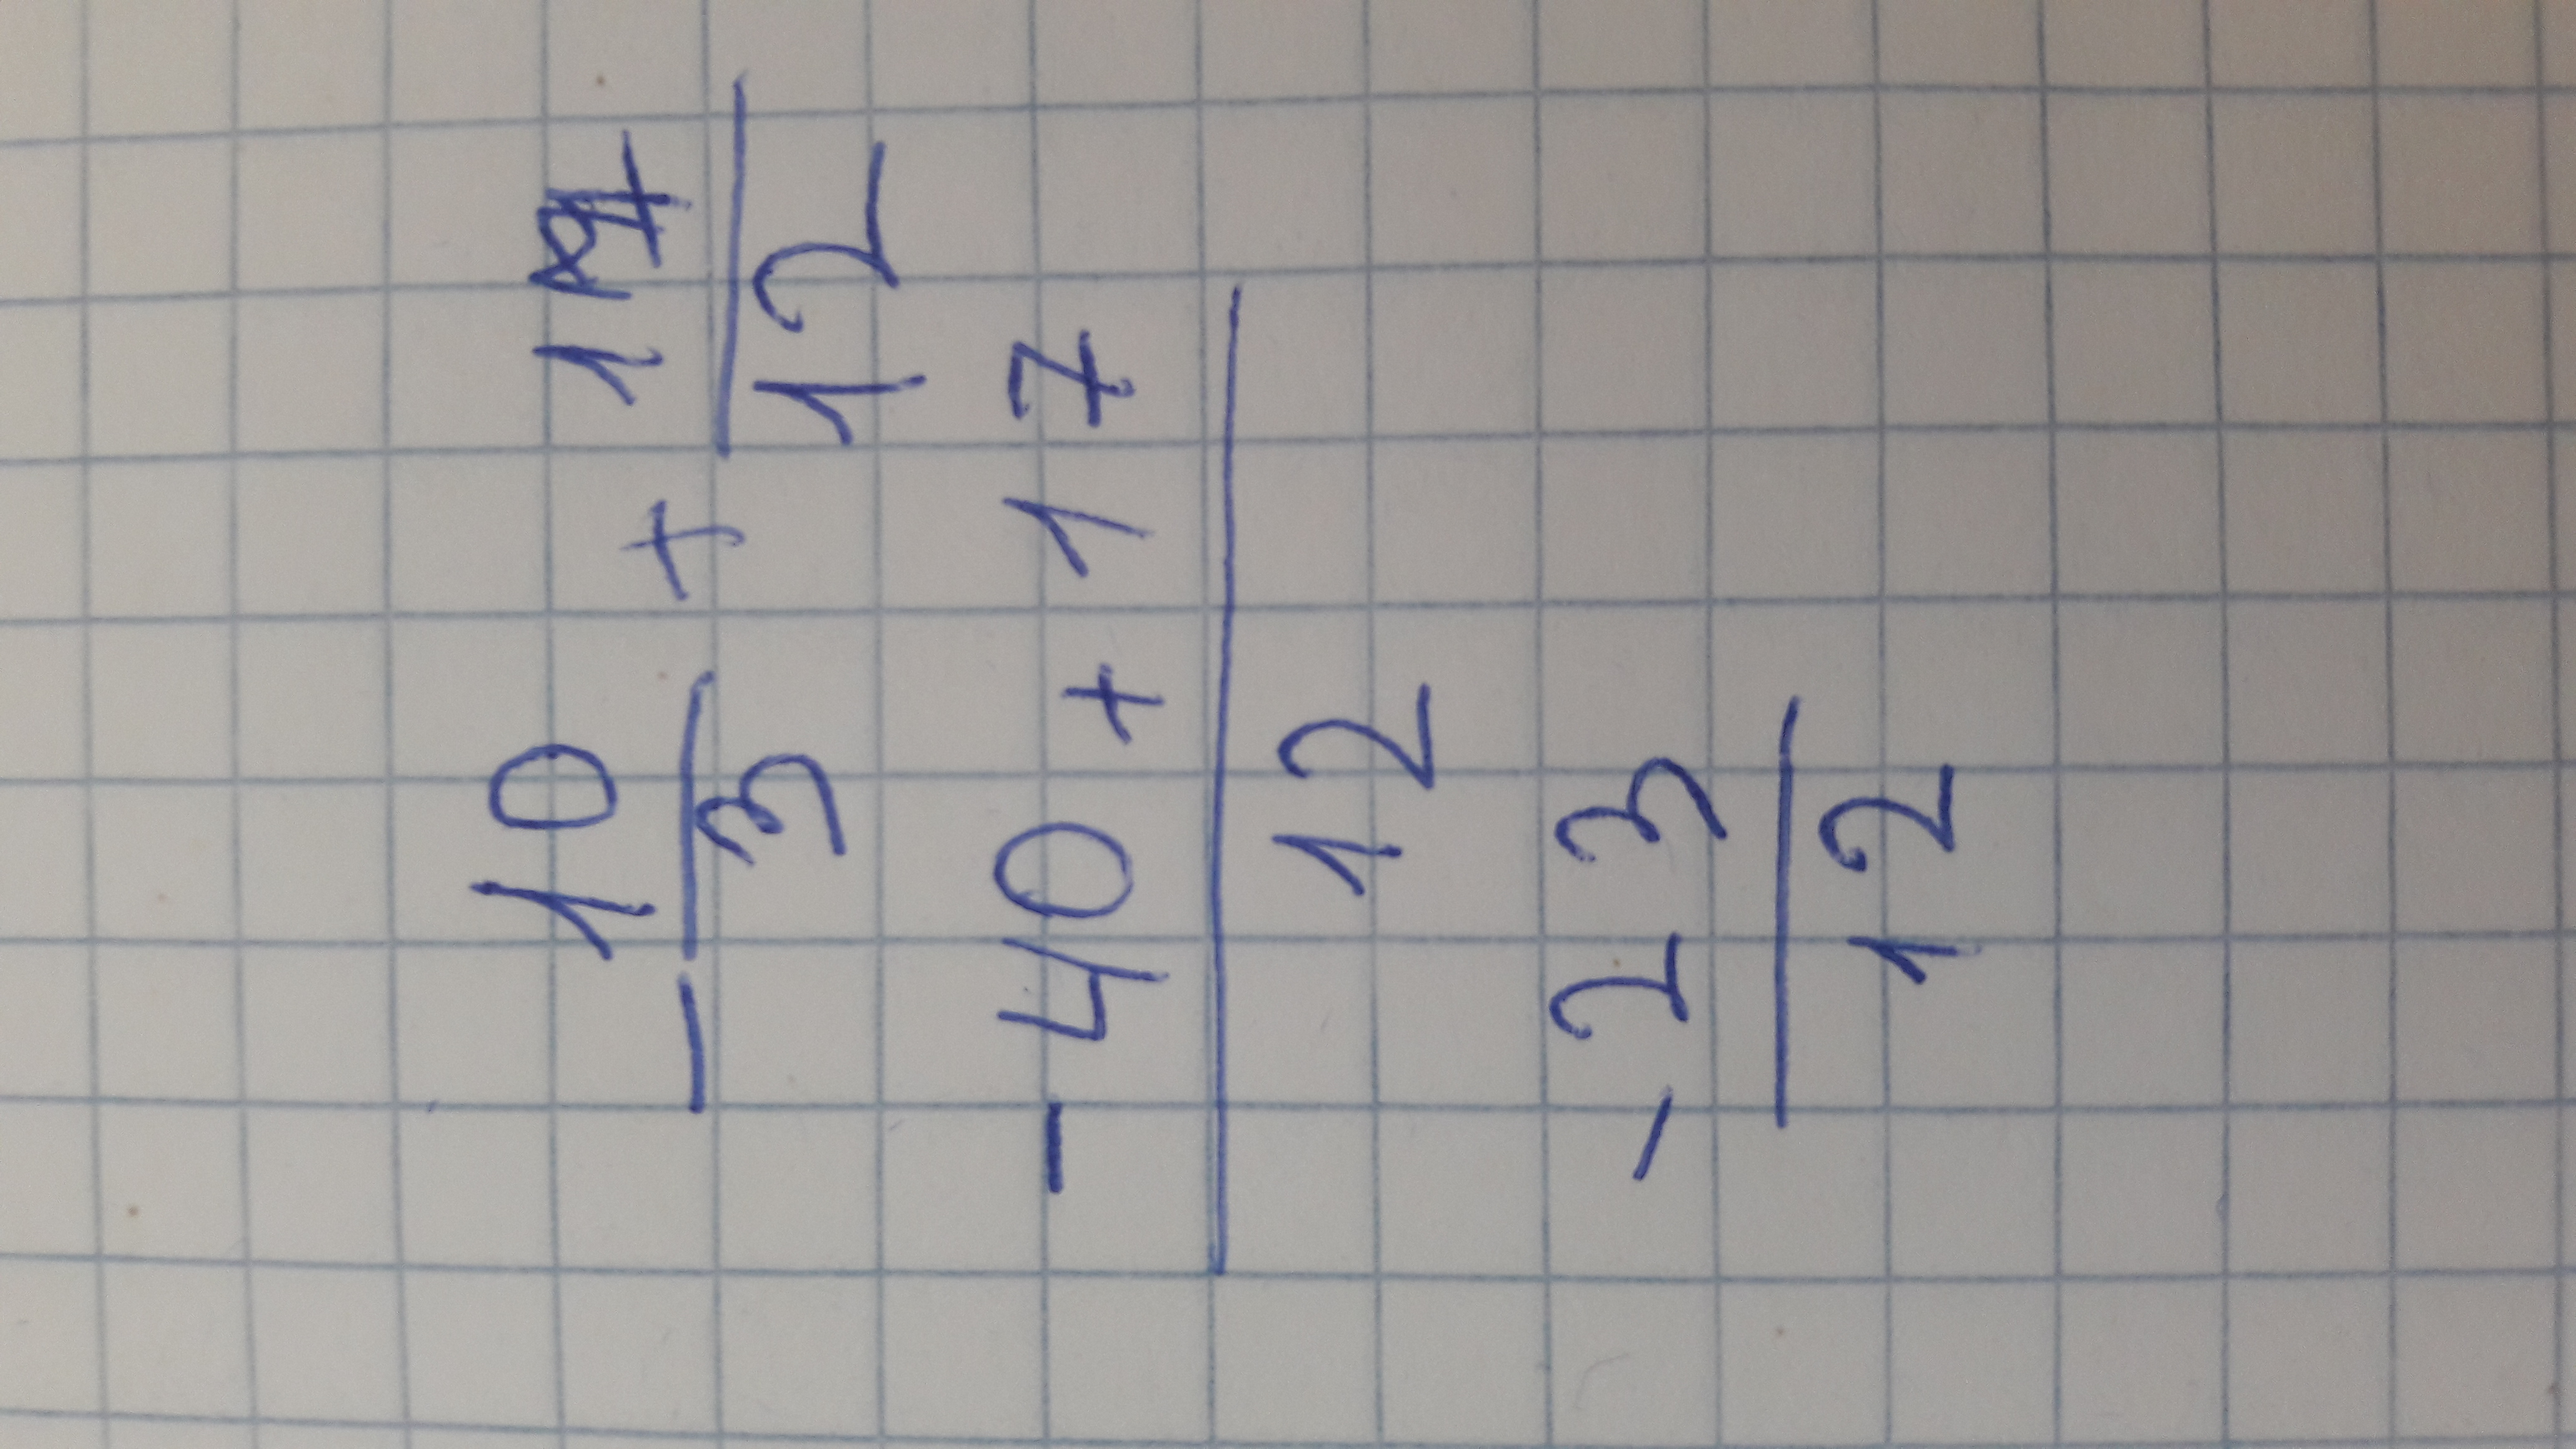 - 10/3 + 17/12
- 40 + 17
12
- 23
12